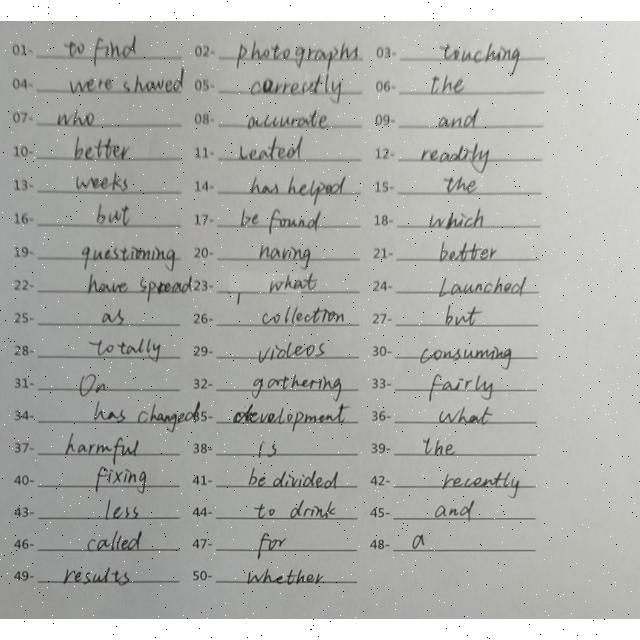 01- to find 02- photographs 03- touching
04- were shaved 05- correctly 06- the
07- who 08- accurate 09- and
10- better 11- Leated 12- readily
13- weeks 14- has helped 15- the
16- but 17- be found 18- which
19- questioning 20- having 21- better
22- have spread 23- what 24- Launched
25- as 26- collection 27- but
28- totally 29- videos 30- consuming
31- On 32- gathering 33- fairly
34- has changed 35- development 36- what
37- harmful 38- is 39- the
40- fixing 41- be divided 42- recently
43- less 44- to drink 45- and
46- called 47- for 48- a
49- results 50- whether